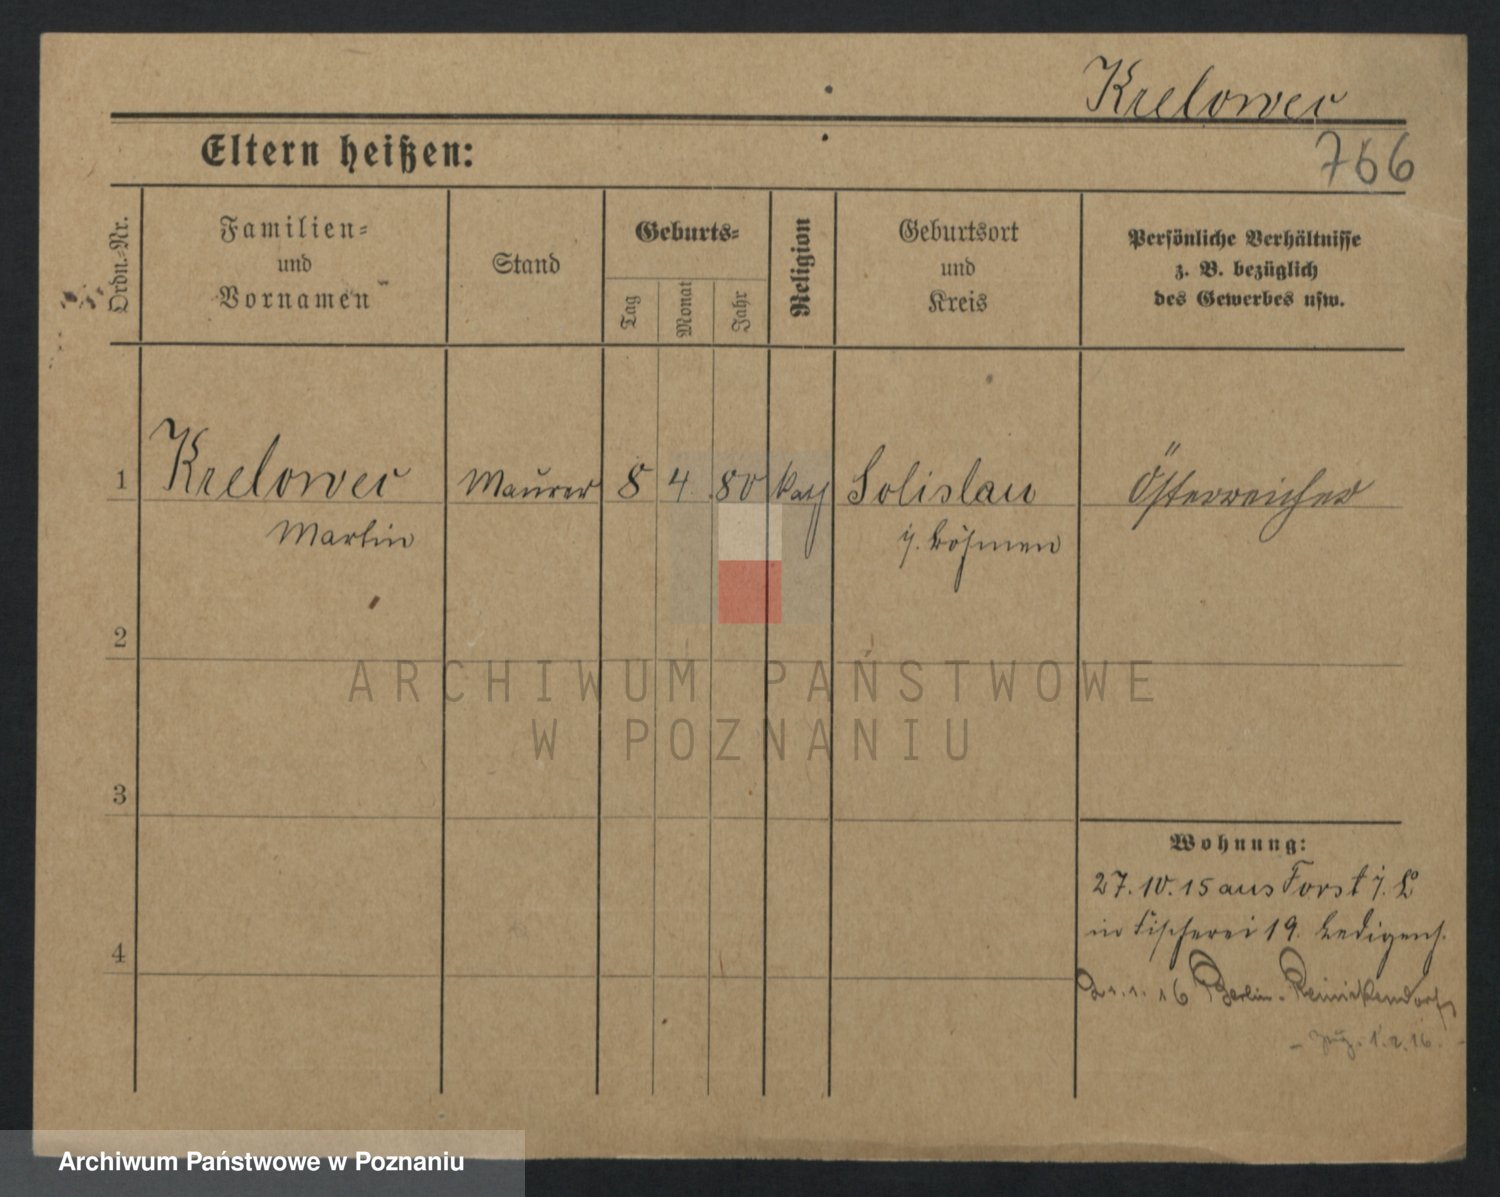 Krelowec
766
Eltern heißen:
Ordn.-Nr.
Familien-
und
Vornamen
Stand
Geburts-
Tag
Monat
Jahr
Religion
Geburtsort
und
Kreis
Persönliche Verhältnisse
z. B. bezüglich
des Gewerbes usw.
1 Krelowec Maurer 8 4 80 kath Solislau Österreicher
Martin i. Böhmen
2
3
4
Wohnung:
27.10.15 aus Forst i. L
in Fischerei 19. Ledigenh.
21.1.16 Berlin-Reinickendorf
1.2.16.
ARCHIWUM PAŃSTWOWE
W POZNANIU
Archiwum Państwowe w Poznaniu